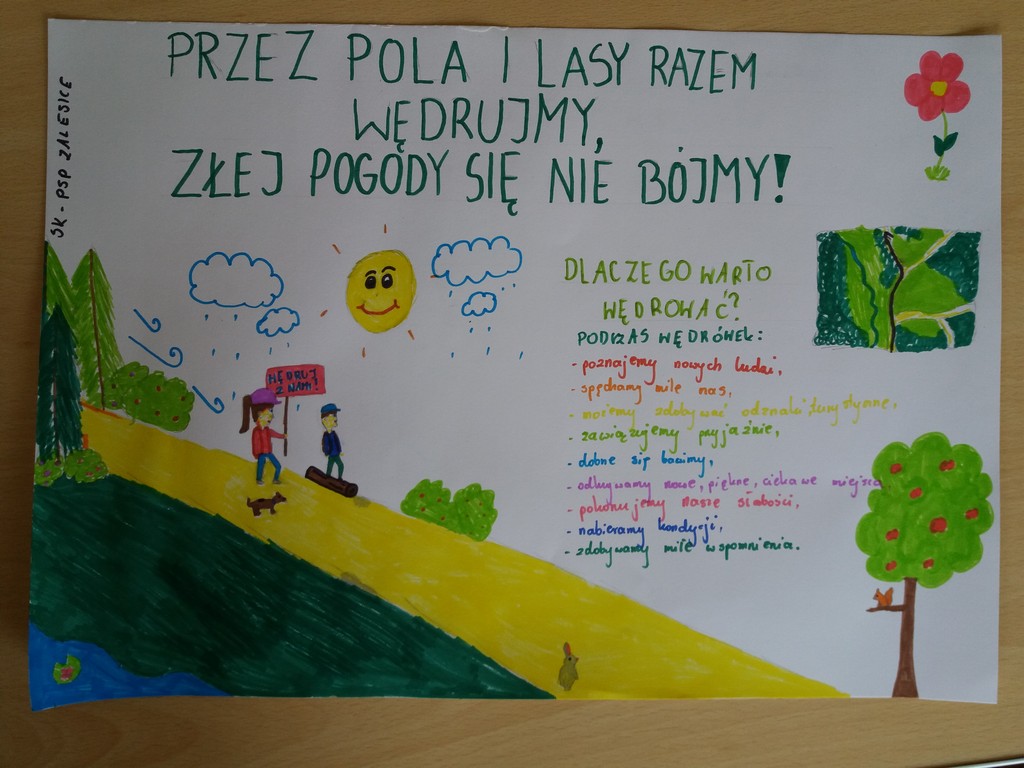 PRZEZ POLA I LASY RAZEM
WĘDRUJMY,
ZŁEJ POGODY SIĘ NIE BÓJMY!
SK - PSP ZALESICE
WĘDRUJ
Z NAMI!
DLACZEGO WARTO
WĘDROWAĆ?
PODCZAS WĘDRÓWEK:
- poznajemy nowych ludzi,
- spędzamy miło czas,
- możemy zdobywać odznaki turystyczne,
- zawiązujemy przyjaźnie,
- dobrze się bawimy,
- odkrywamy nowe, piękne, ciekawe miejsca
- pokonujemy nasze słabości,
- nabieramy kondycji,
- zdobywamy miłe wspomnienia.